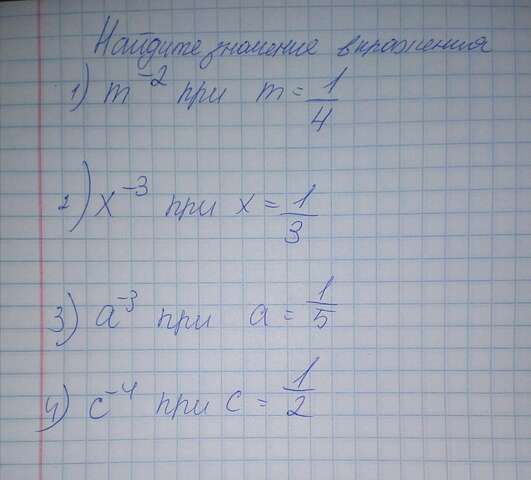 Найдите значение выражения
1) m⁻² при m = 1/4
2) x⁻³ при x = 1/3
3) a⁻³ при a = 1/5
4) c⁻⁴ при c = 1/2